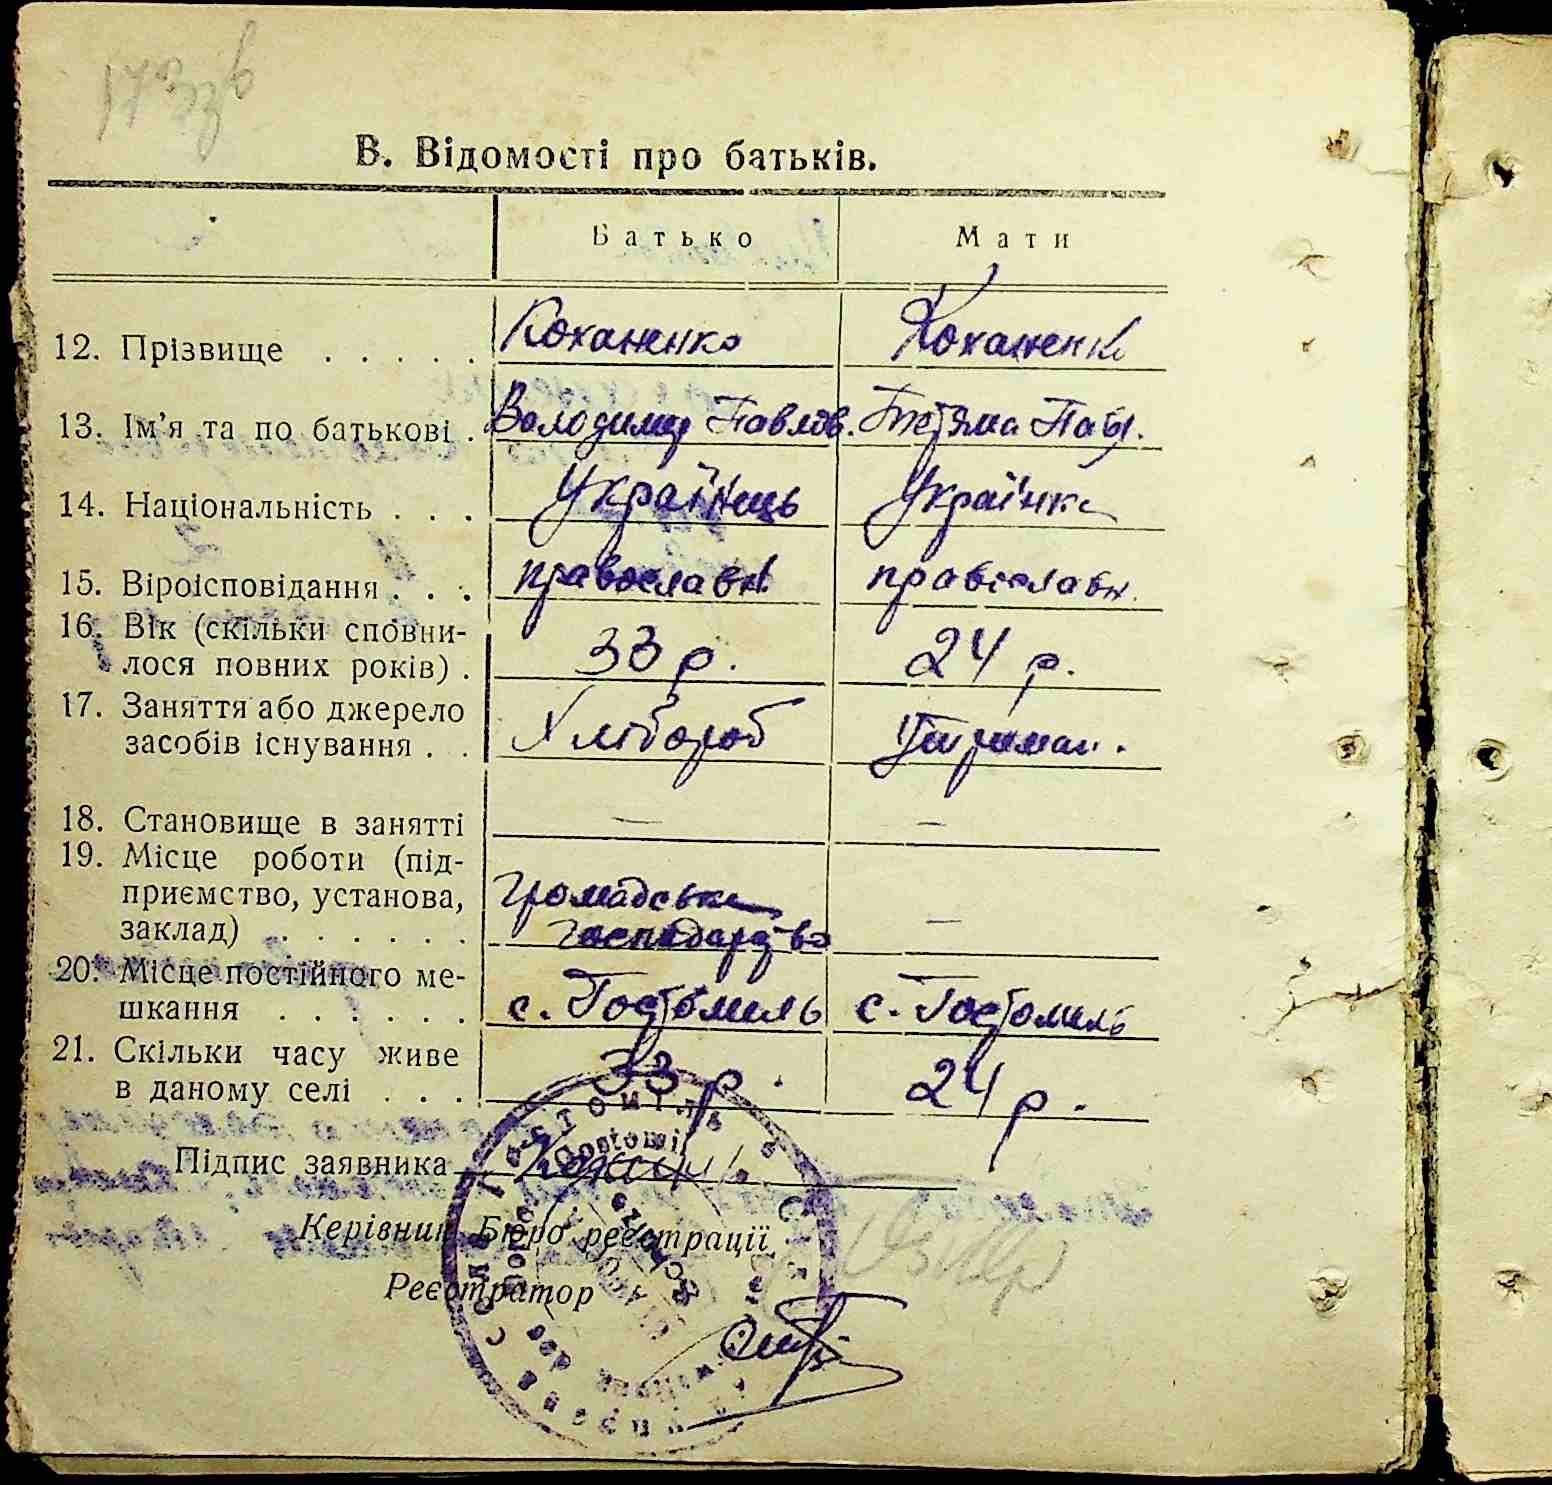 173 зв
В. Відомості про батьків.
Батько Мати
12. Прізвище . . . . . Коханенко Коханенко
13. Ім'я та по батькові . Володимир Павлов. Тетяна Павл.
14. Національність . . . Українець Українка
15. Віроісповідання . . . православн. православн.
16. Вік (скільки сповни-
лося повних років) . 33 р. 24 р.
17. Заняття або джерело
засобів існування . . Хлібороб Утриман.
18. Становище в занятті — —
19. Місце роботи (під-
приємство, установа, Громадське
заклад) . . . . . . господарство —
20. Місце постійного ме-
шкання . . . . . . с. Гостомель с. Гостомель
21. Скільки часу живе
в даному селі . . . 33 р. 24 р.
Підпис заявника
Керівник Бюро реєстрації
Реєстратор